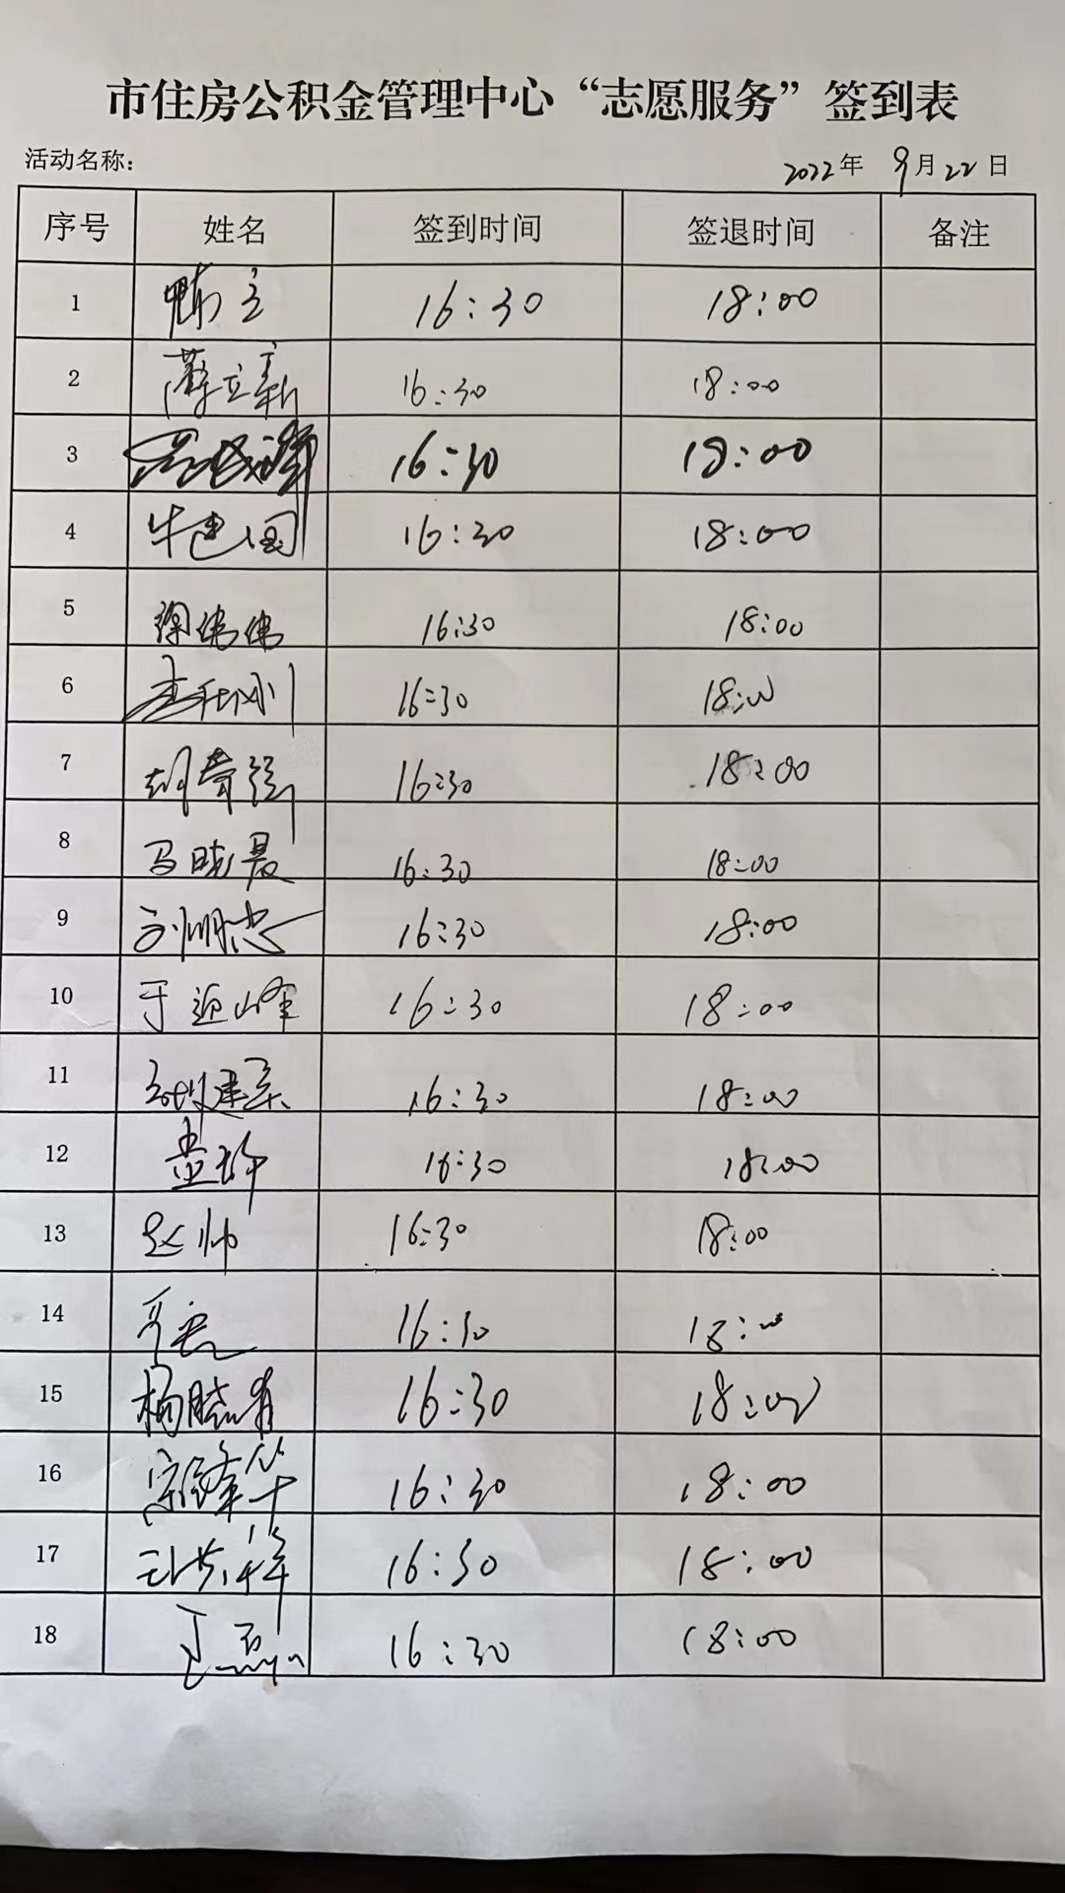 市住房公积金管理中心“志愿服务”签到表
活动名称： 2022年 9月22日
序号 姓名 签到时间 签退时间 备注
1 16:30 18:00
2 薛立新 16:30 18:00
3 16:30 18:00
4 牛建国 16:30 18:00
5 徐伟伟 16:30 18:00
6 16:30 18:00
7 胡奇强 16:30 18:00
8 马晓晨 16:30 18:00
9 刘明忠 16:30 18:00
10 于迎峰 16:30 18:00
11 16:30 18:00
12 孟珍 16:30 18:00
13 赵帅 16:30 18:00
14 16:30 18:00
15 杨晓青 16:30 18:00
16 宋绛华 16:30 18:00
17 16:30 18:00
18 王磊 16:30 18:00